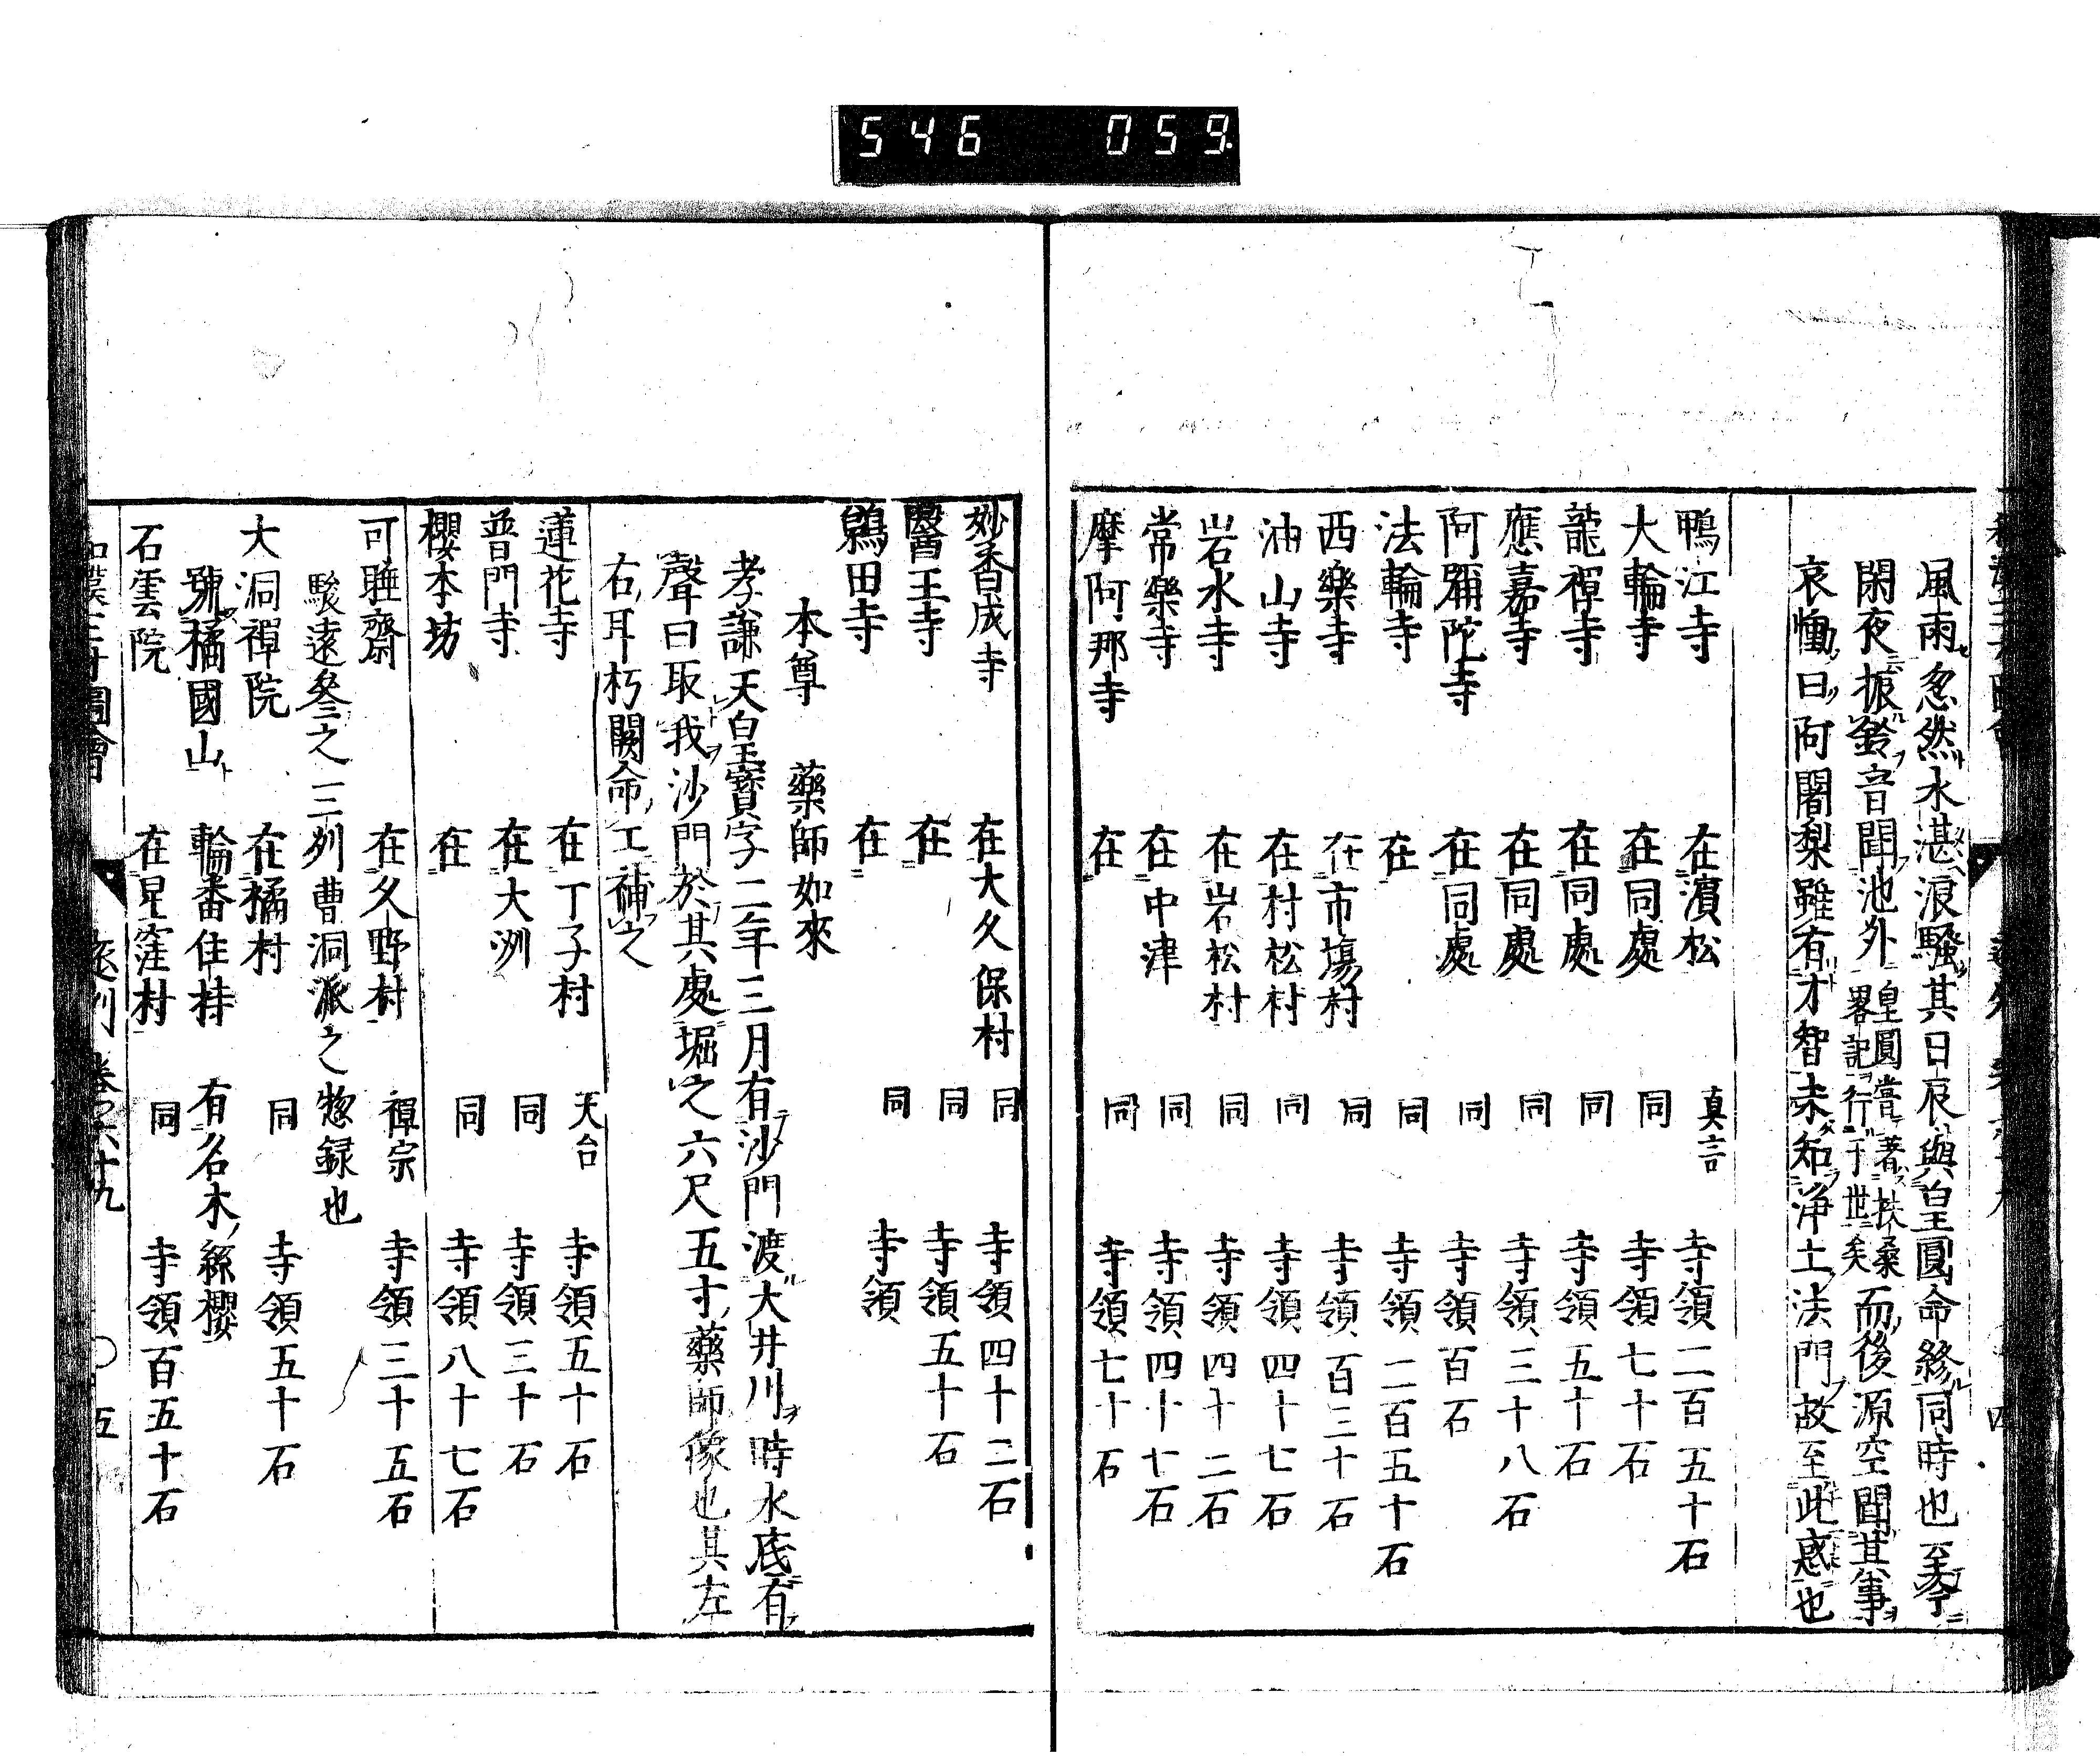 546 059
風雨忽然水湛浪騷其日辰與皇圓命終同時也至今
閑夜振鈴音聞池外皇圓嘗著扶桑畧記行于世矣而後源空聞其事
哀慟曰阿闍梨雖有才智未知淨土法門故至此惑也
鴨江寺 在濱松 真言 寺領二百五十石
大輪寺 在同處 同 寺領七十石
龍禪寺 在同處 同 寺領五十石
應嘉寺 在同處 同 寺領三十八石
阿彌陀寺 在同處 同 寺領百石
法輪寺 在 同 寺領二百五十石
西樂寺 在市場村 同 寺領百三十石
油山寺 在村松村 同 寺領四十七石
岩水寺 在岩松村 同 寺領四十二石
常樂寺 在中津 同 寺領四十七石
摩阿那寺 在 同 寺領七十石
妙香成寺 在大久保村 同 寺領四十二石
醫王寺 在 同 寺領五十石
鵜田寺 在 同 寺領
本尊 藥師如來
孝謙天皇寶字二年三月有沙門渡大井川時水底有
聲曰取我沙門於其處堀之六尺五寸藥師像也其左
右耳朽闕命工補之
蓮花寺 在丁子村 天台 寺領五十石
普門寺 在大洲 同 寺領三十石
櫻本坊 在 同 寺領八十七石
可睡齋 在久野村 禪宗 寺領三十五石
駿遠叄之三列曹洞派之惣録也
大洞禪院 在橘村 同 寺領五十石
號橘國山 輪番住持 有名木絲櫻
石雲院 在星窪村 同 寺領百五十石
遠州 卷之六十九 〇五